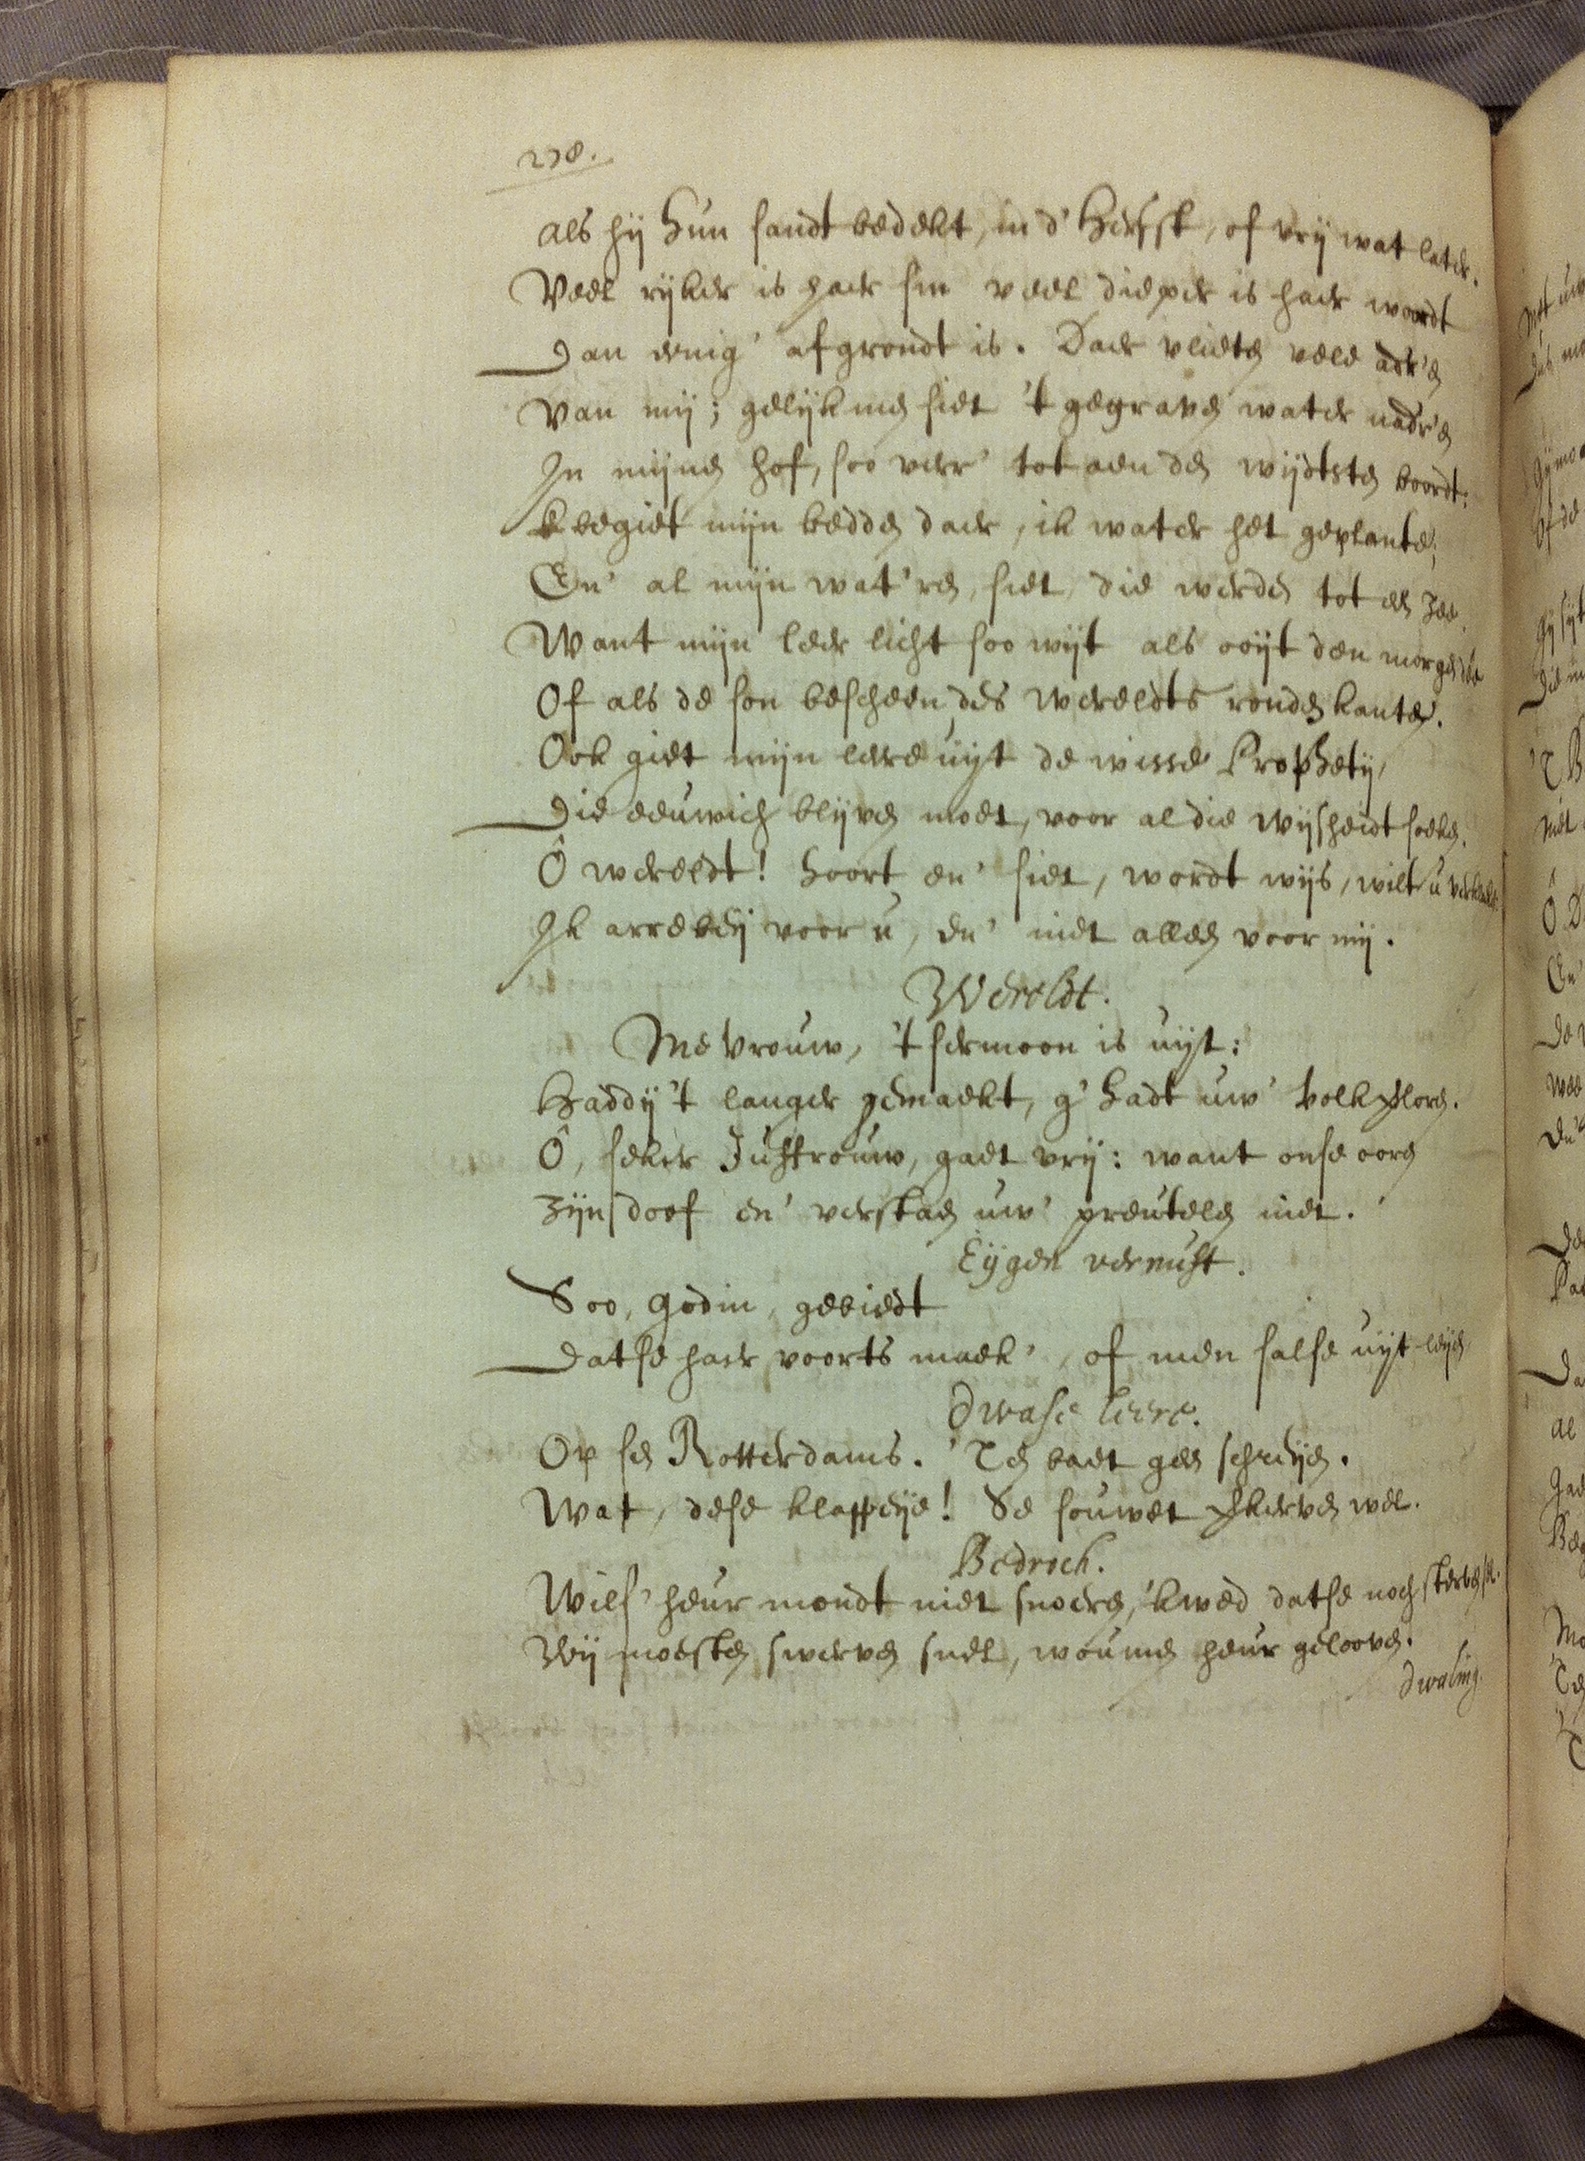 278.
als hij hun sandt bedekt, in d' Herfst, of vrij wat later.
Veel rijker is haer sin veel dieper is haer woordt
Dan eenig' afgrondt is. Daer vlieten vele adr'en
Van mij; gelijk men siet 't gegraven water nadr'en
In mijnen hof, soo verr' tot aen den wijdtsten boordt:
k begiet mijn bedden daer, ik water het geplante;
En' al mijn wat'ren, siet, die werden tot een Zee.
Want mijn leer licht soo wijt als ooijt den morgen dee
Of als de son bescheen des wereldts ronden kante.
Ook giet mijn leere uijt de wisse Prophetij,
Die eeuwich blijven moet, voor al die wijsheidt soeken.
Ô wereldt! hoort en' siet, wordt wijs, wilt u
Ik arrebeij voor u, en' niet alleen voor mij.
Wereldt.
Me Vrouw, 't sermoon is uijt:
Haddij 't langer gemaekt, g' hadt uw' volk verloren.
Ô, seker Juffrouw, gaet vrij: want onse ooren
Zijn doof en' verstaen uw' preutelen niet.
Eijgen vernuft.
Soo, Godin, gebiedt
Datse haer voorts maek', of men salse uijt leijen,
Dwase leere.
Op sen Rotterdams. 'Ten baet geen schreijen.
Wat, dese klappeije! Se souwet verkerven wel.
Bedroch.
Wils' heur mondt niet snoeren, 'kwed datse noch
Wij moesten swerven snel, wou men heur gelooven.
Dwaling.